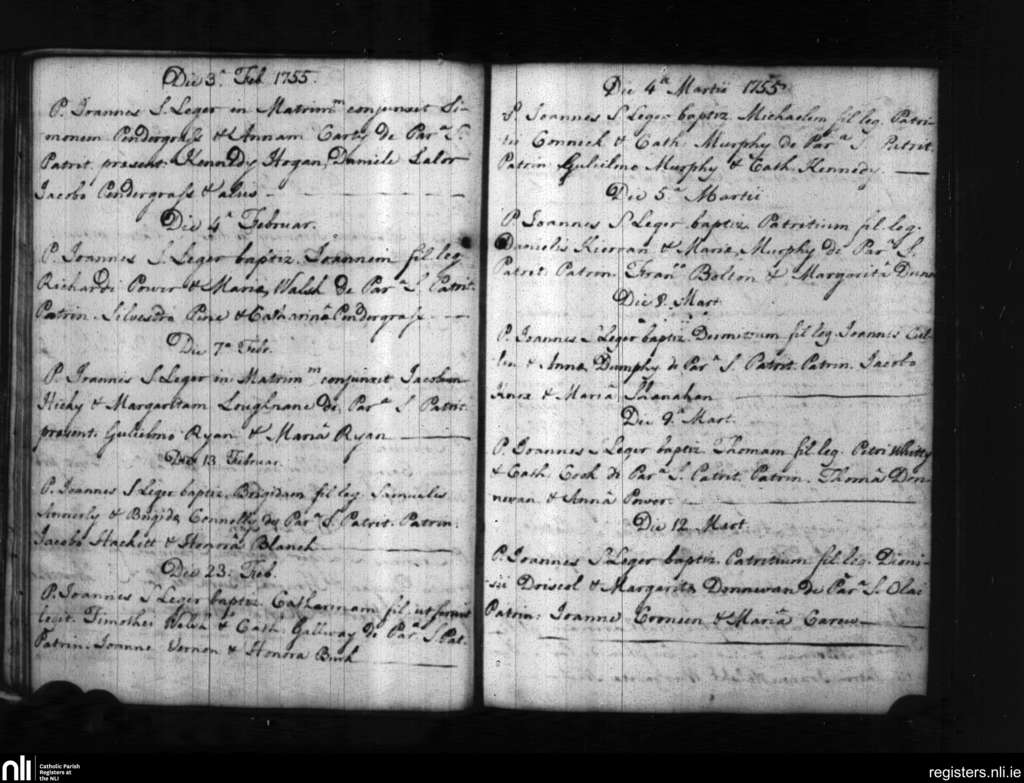 Die 3.ª Feb 1755.
P. Joannes S. Leger in Matrim.m conjunxit Si-
monem Pendergrass & Annam Carty de Par.a S.
Patrit. present. Kennedy Hogan, Daniele Lalor
Jacobo Pendergrass & aliis —
Die 4.ª Februar.
P. Joannes S. Leger baptiz. Joannem fil. leg.
Richardi Power & Mariæ Walsh de Par.a S. Patrit.
Patrin. Silvestro Pine & Catharinâ Pendergrass —
Die 7.ª Feb.
P. Joannes S. Leger in Matrim.m conjunxit Jacobum
Hicky & Margaritam Loughnane de Par.a S. Patrit.
present. Gulielmo Ryan & Mariâ Ryan —
Die 13. Februar.
P. Joannes S. Leger baptiz. Brigidam fil. leg. Samuelis
& Brigidæ Connolly de Par.a S. Patrit. Patrin.
Jacobo Hackett & Honorâ Blanch —
Die 23. Feb.
P. Joannes S. Leger baptiz. Catharinam fil. ut
legit. Timothei & Cath. Gallway de Par.a S. Pat.
Patrin. Joanne Vernon & Honora —
Die 4.ª Martii 1755
P. Joannes S. Leger baptiz. Michaelem fil. leg. Patri-
tii Conneck & Cath. Murphy de Par.a S. Patrit.
Patrin Gulielmo Murphy & Cath. Kennedy. —
Die 5.ª Martii
P. Joannes S. Leger baptiz. Patritium fil. leg.
Danielis Kiervan & Mariæ Murphy de Par.a S.
Patrit. Patrin. Fran.co Bolton & Margaritâ
Die 8. Mart.
P. Joannes S. Leger baptiz. Dermitium fil. leg. Joannis Cul-
len & Annæ Dumphy de Par.a S. Patrit. Patrin. Jacobo
Knox & Mariâ Shanahan —
Die 9.ª Mart.
P. Joannes S. Leger baptiz. Thomam fil. leg. Petri Whitty
& Cath. Cook de Par.a S. Patrit. Patrin. Thomâ Don-
newan & Annâ Power. —
Die 12 Mart.
P. Joannes S. Leger baptiz. Patritium fil. leg. Dioni-
sii Driscol & Margaritæ Donnewan de Par.a S. Olai
Patrin. Joanne Croneen & Mariâ Carew —
nli Catholic Parish
Registers at
the NLI
registers.nli.ie